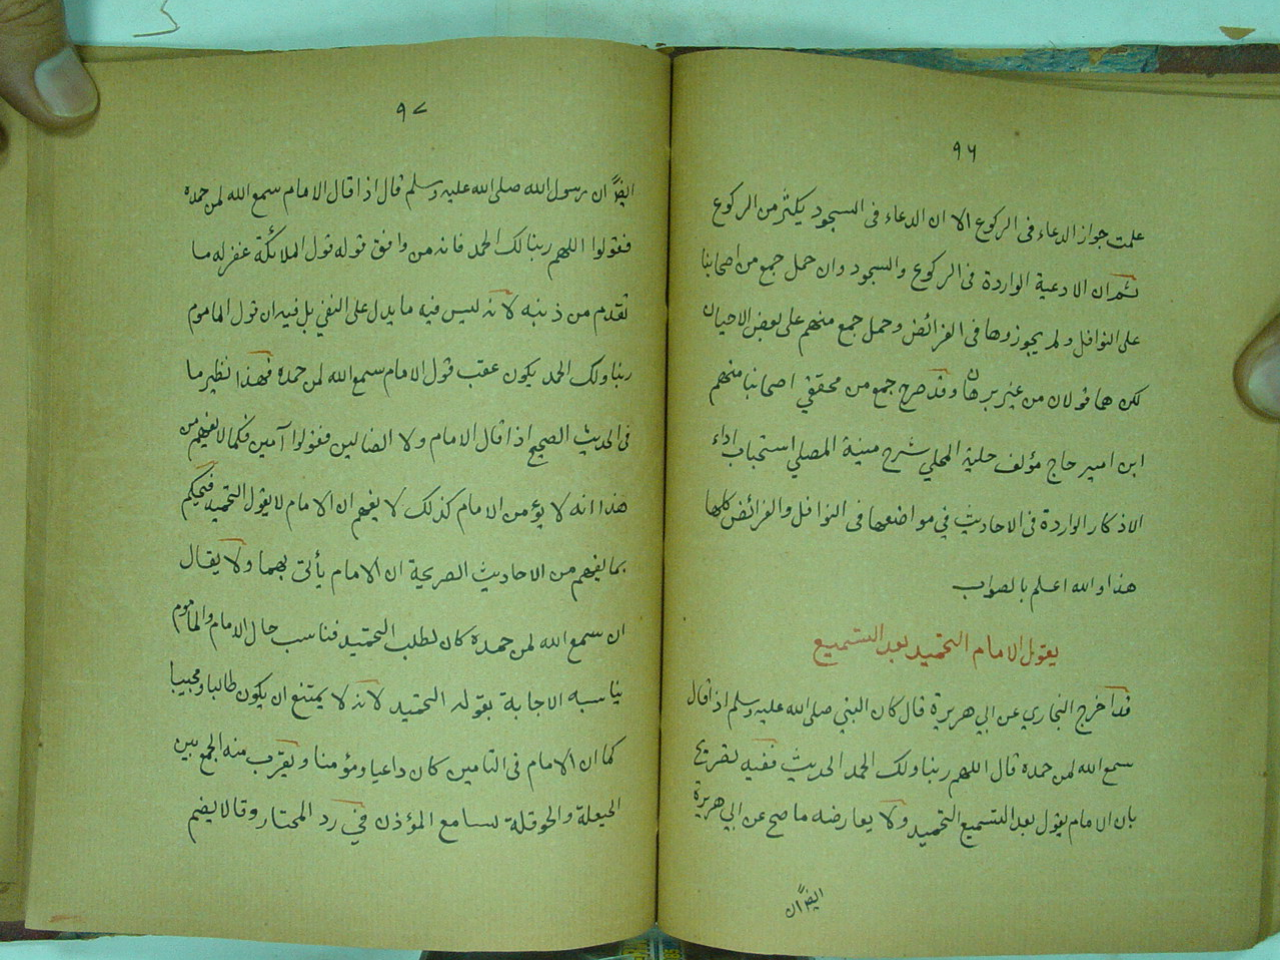 ٩٦
علمت جواز الدعاء فى الركوع الا ان الدعاء فى السجود يكثر من الركوع
ثم ان الادعية الواردة فى الركوع والسجود وان حمل جمع من اصحابنا
على النوافل ولم يجوزوها فى الفرائض وحمل جمع منهم على بعض الاحيان
لكن هما قولان من غير برهان وقد صرح جمع من محققي اصحابنا منهم
ابن امير حاج مؤلف حلية المحلي شرح منية المصلي استحباب اداء
الاذكار الواردة فى الاحاديث في مواضعها فى النوافل والفرائض كلها
هذا والله اعلم بالصواب
يقول الامام التحميد بعد التسميع
قد اخرج البخاري عن ابي هريرة قال كان النبي صلى الله عليه وسلم اذا قال
سمع الله لمن حمده قال اللهم ربنا ولك الحمد الحديث ففيه تصريح
بان الامام يقول بعد التسميع التحميد ولا يعارضه ما صح عن ابي هريرة
ايضاً ان
٩٧
ايضاً ان رسول الله صلى الله عليه وسلم قال اذا قال الامام سمع الله لمن حمده
فقولوا اللهم ربنا لك الحمد فانه من وافق قوله قول الملائكة غفر له ما
تقدم من ذنبه لانه ليس فيه ما يدل على النفي بل فيه ان قول الماموم
ربنا ولك الحمد يكون عقب قول الامام سمع الله لمن حمده فهذا نظير ما
فى الحديث الصحيح اذا قال الامام ولا الضالين فقولوا آمين فكما لا يفهم من
هذا انه لا يؤمن الامام كذلك لا يفهم ان الامام لا يقول التحميد فيحكم
بما يفهم من الاحاديث الصريحة ان الامام يأتى بهما ولا يقال
ان سمع الله لمن حمده كان لطلب التحميد فناسب حال الامام والماموم
يناسبه الاجابة بقوله التحميد لانه لا يمتنع ان يكون طالبا ومجيبا
كما ان الامام فى التامين كان داعيا ومؤمنا ويقرب منه الجمع بين
الحيعلة والحوقلة لسامع المؤذن في رد المحتار وقالا يضم